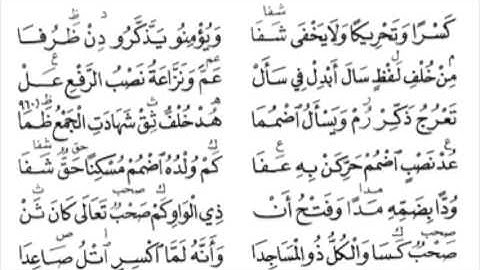 كَسْرًا وَتَحْرِيكًا وَلَا يَخْفَى شَفَا وَيُؤْمِنُو يَذَّكَّرُو دِنْ ظَرُفَا
مِنْ خُلْفِ لَفْظٍ سَالَ أَبْدِلْ فِي سَأَلْ عَمَّ وَنَزَّاعَةُ نَصْبُ الرَّفْعِ عَلْ
تَعْرُجُ ذَكِّرْ رُمْ وَيَسْأَلُ اضْمُمَا هُدْ خُلْفُ ثِقْ شَهَادَتِ الْجَمْعُ ظَمَا
عُدْ نَصْبٍ اضْمُمْ حَرِّكَنْ بِهِ عَفَا كَمْ وُلْدُهُ اضْمُمْ مُسْكِنًا حَقٌّ شَفَا
وُدًّا بِضَمِّهِ مَدًا وَفَتْحُ أَنْ ذِي الْوَاوِ كَمْ صَحْبٌ تَعَالَى كَانَ ثَنْ
صَحْبٌ كَسَا وَالْكُلُّ ذُو الْمَسَاجِدَا وَأَنَّهُ لَمَّا اكْسِرِ اتْلُ صَاعِدَا